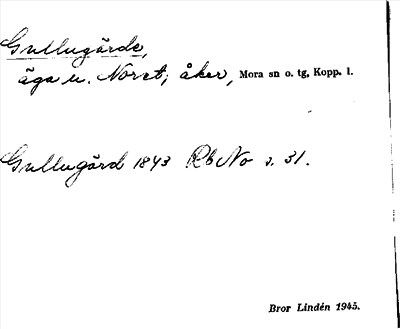 Gullugärde,
äga u. Noret; åker, Mora sn o. tg, Kopp. l.
Gullugärd 1843 Rb No s. 31.
Bror Lindén 1945.